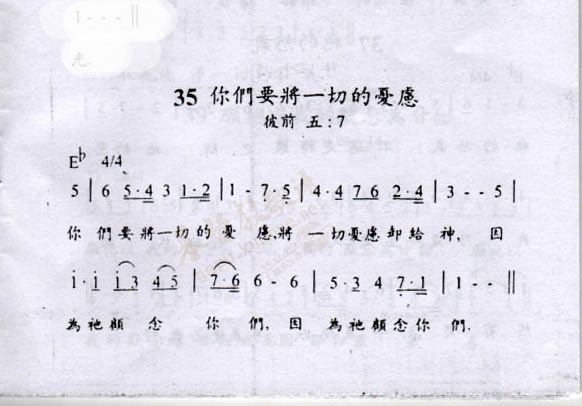 1 - - - ‖
光.
35 你們要將一切的憂慮
彼前 五:7
E♭ 4/4
5 | 6 5·4 3 1·2 | 1 - 7·5 | 4·4 7 6 2·4 | 3 - - 5 |
你 們 要將一切的 憂 慮,將 一切憂慮卸給 神, 因
i·i i 3 4 5 | 7·6 6 - 6 | 5·3 4 7·1 | 1 - - ‖
為祂顧 念 你 們, 因 為祂顧念你 們.